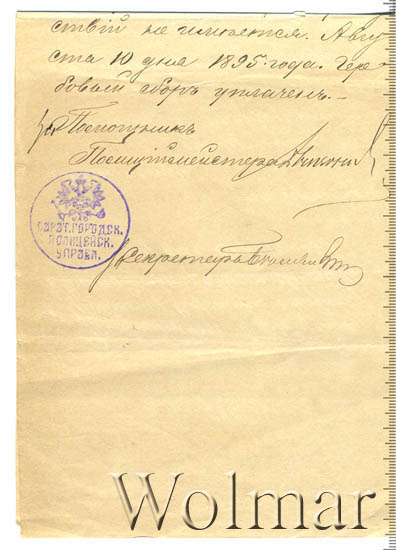 ствій не имѣется. Авгу
ста 10 дня 1895 года. Гер-
бовый сборъ уплаченъ. —
Помощникъ
Полиціймейстера
САРАТ. ГОРОДСК.
ПОЛИЦЕЙСК.
УПРАВЛ.
Секретарь
Wolmar